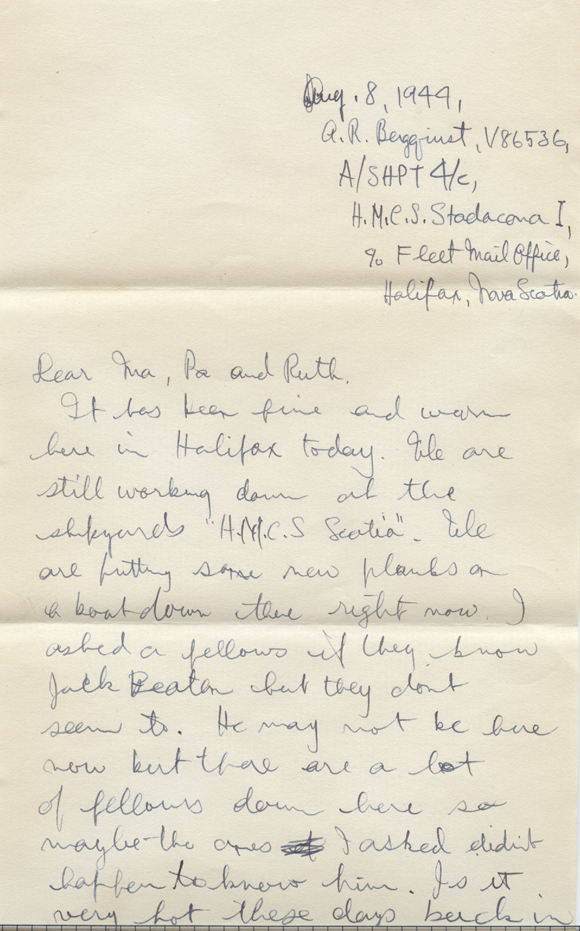 Aug. 8, 1944,
A.R. Bergquist, V86536,
A/SHPT 4/c,
H.M.C.S. Stadacona I,
% Fleet Mail Office,
Halifax, Nova Scotia.
Dear Ma, Pa and Ruth.
It has been fine and warm
here in Halifax today. We are
still working down at the
shipyards "H.M.C.S Scotia". We
are putting some new planks on
a boat down there right now. I
asked a fellows if they know
Jack Beaton but they dont
seem to. He may not be here
now but there are a lot
of fellows down here so
maybe the ones I asked didn't
happen to know him. Is it
very hot these days back in